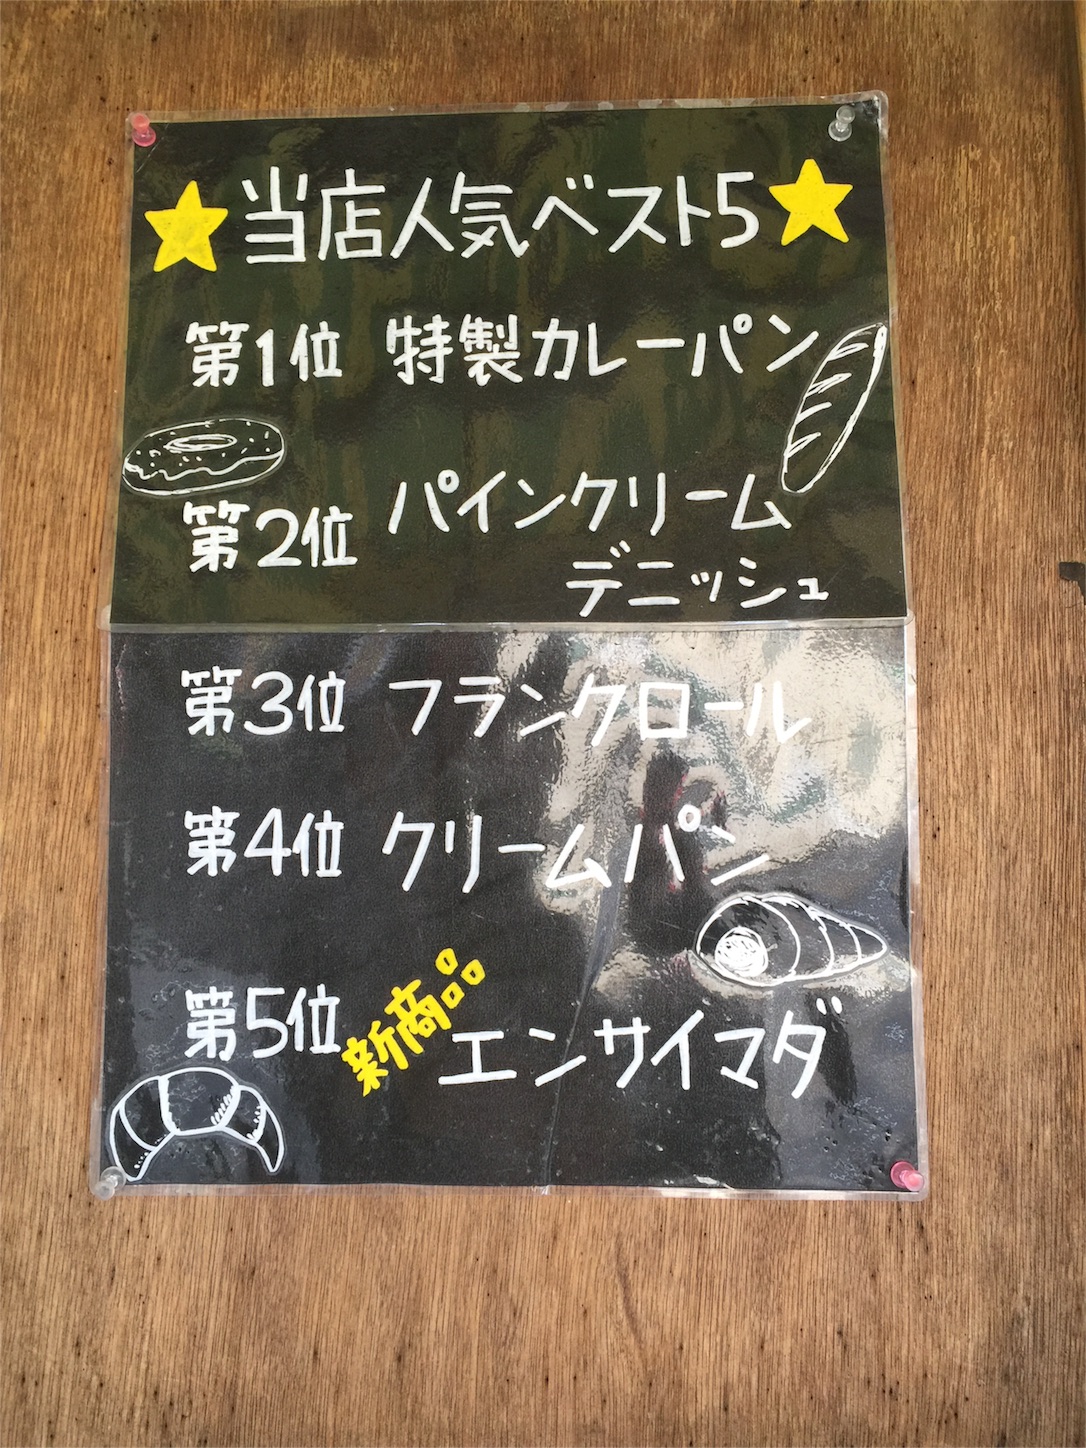 ★当店人気ベスト5★
第1位 特製カレーパン
第2位 パインクリーム
デニッシュ
第3位 フランクロール
第4位 クリームパン
第5位 新商品 エンサイマダ